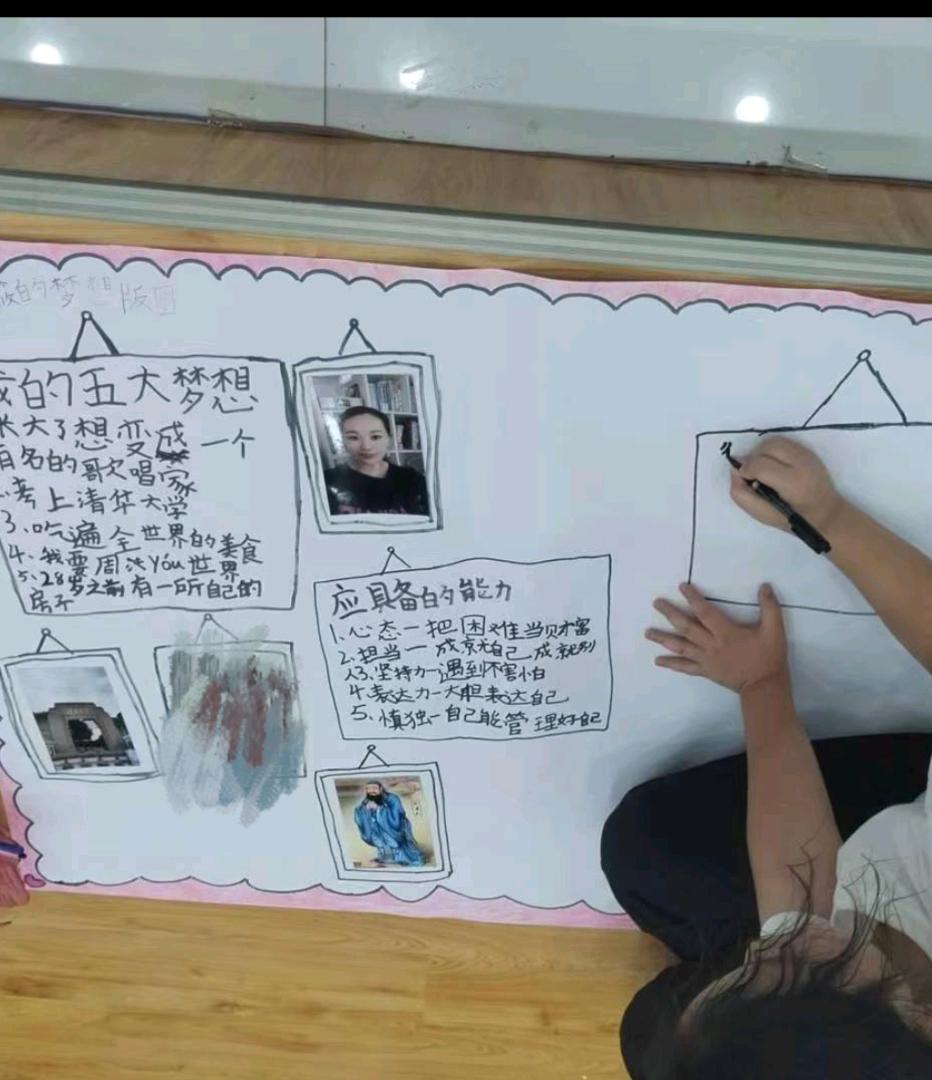 的梦想版图
我的五大梦想
长大了想变成一个
有名的歌欠唱家
2.考上清华大学
3、吃遍全世界的美食
4、我要周游yóu世界
5、28岁之前有一所自己的
房子
应具备的能力
1、心态一把困难当财富
2、担当一成就自己成就别
人3、坚持力一遇到不害怕
4、表达力一大胆表达自己
5、慎独一自己能管理好自己